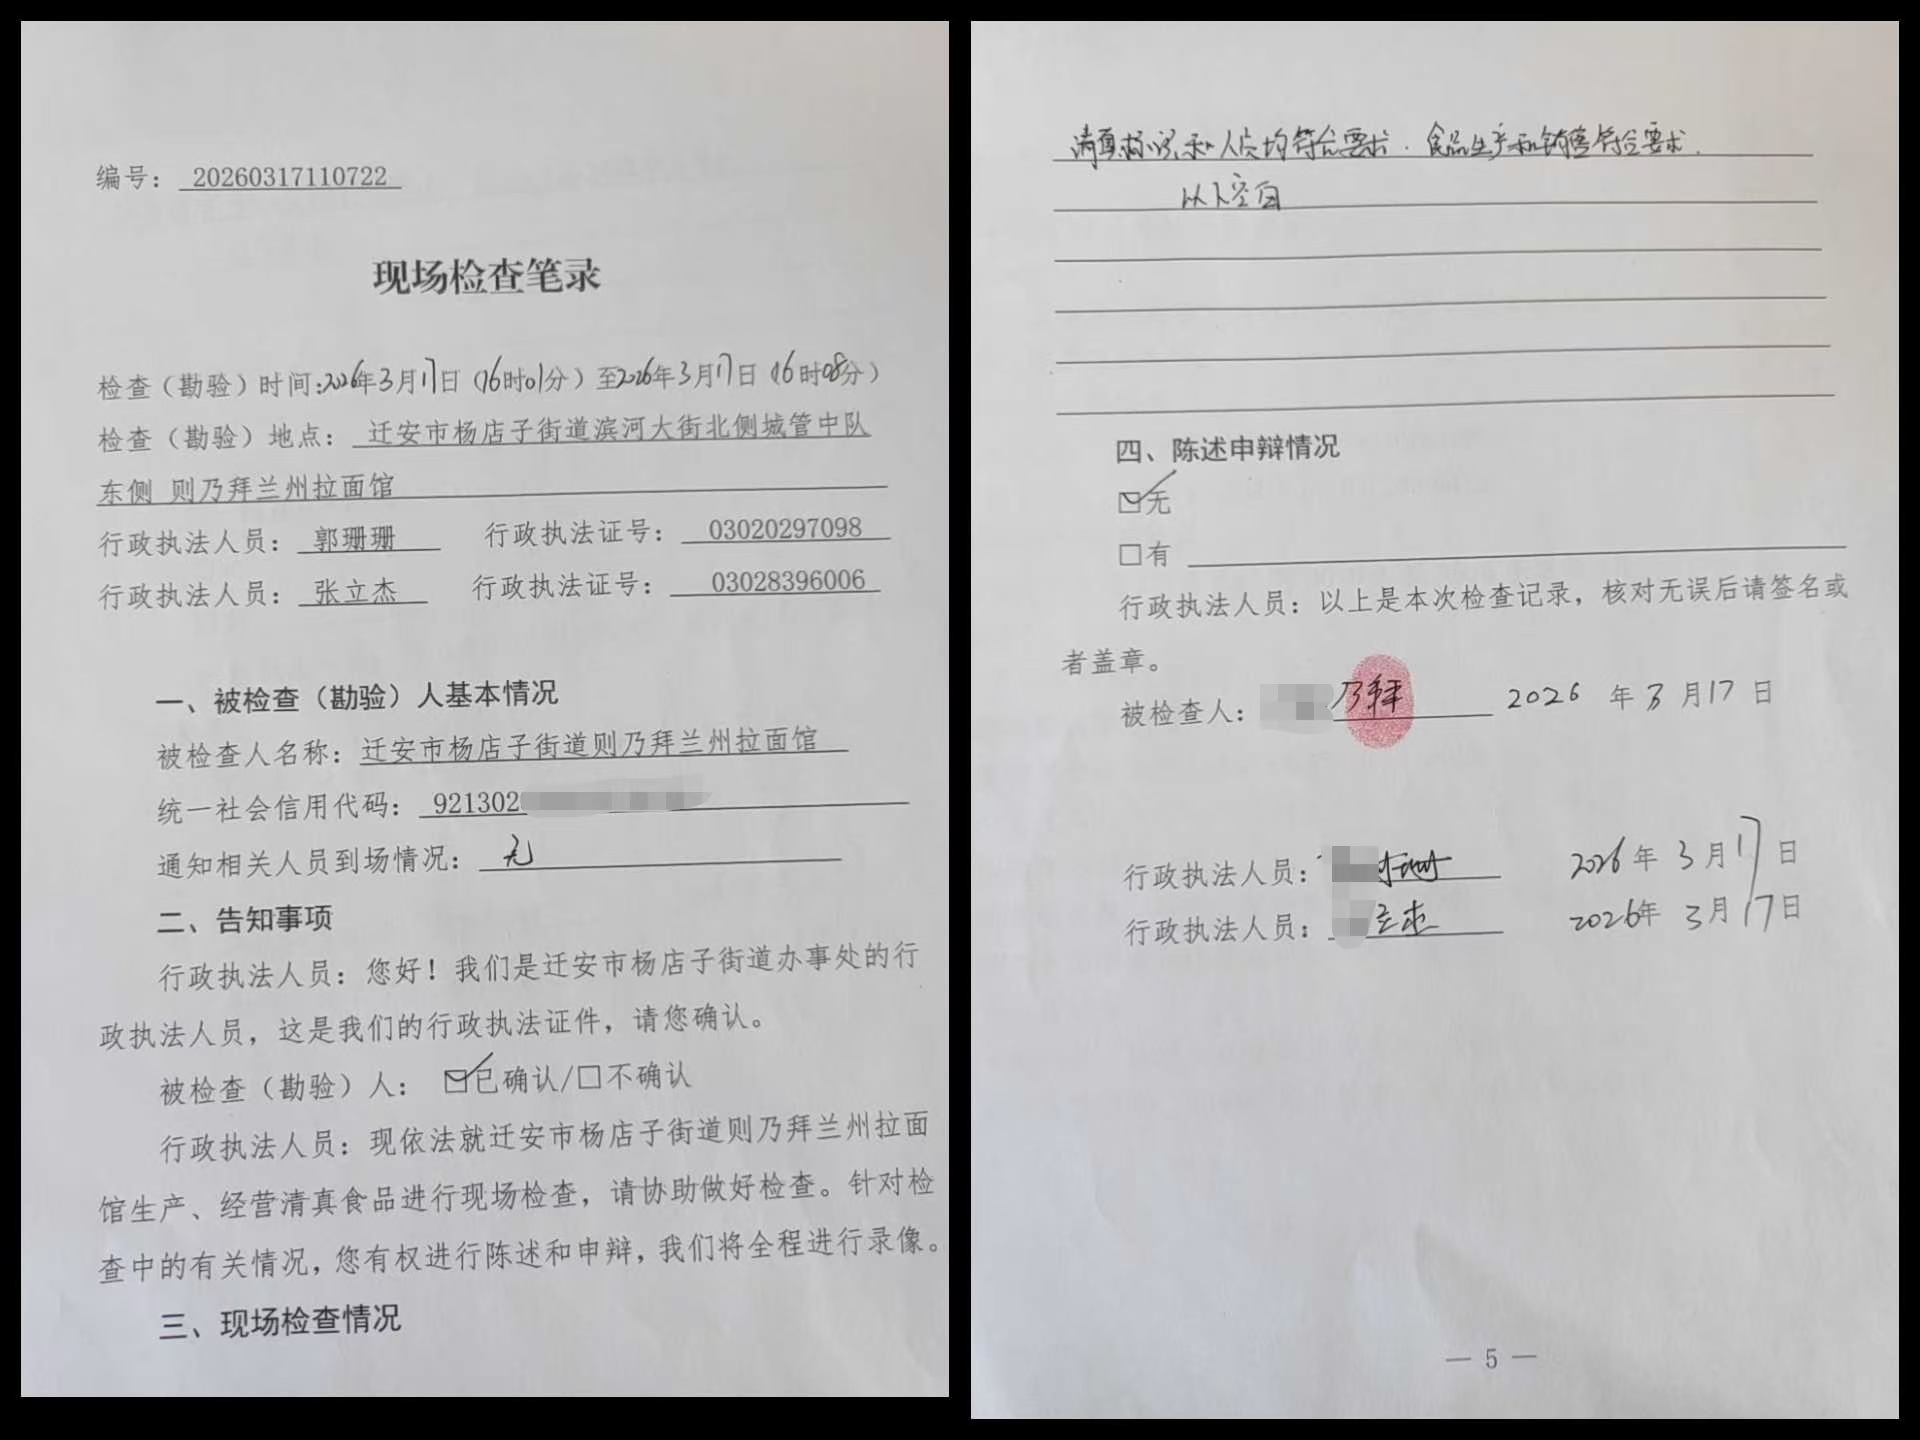 编号： 20260317110722
现场检查笔录
检查（勘验）时间:2026年3月17日（16时01分）至2026年3月17日（16时08分）
检查（勘验）地点： 迁安市杨店子街道滨河大街北侧城管中队
东侧 则乃拜兰州拉面馆
行政执法人员： 郭珊珊 行政执法证号： 03020297098
行政执法人员： 张立杰 行政执法证号： 03028396006
一、被检查（勘验）人基本情况
被检查人名称：迁安市杨店子街道则乃拜兰州拉面馆
统一社会信用代码： 921302
通知相关人员到场情况： 无
二、告知事项
行政执法人员：您好！我们是迁安市杨店子街道办事处的行
政执法人员，这是我们的行政执法证件，请您确认。
被检查（勘验）人： ☑已确认/□不确认
行政执法人员：现依法就迁安市杨店子街道则乃拜兰州拉面
馆生产、经营清真食品进行现场检查，请协助做好检查。针对检
查中的有关情况，您有权进行陈述和申辩，我们将全程进行录像。
三、现场检查情况
清真标识和人员均符合要求．食品生产和销售符合要求．
以下空白
四、陈述申辩情况
☑无
□有
行政执法人员：以上是本次检查记录，核对无误后请签名或
者盖章。
被检查人： 乃拜 2026 年 3 月 17 日
行政执法人员： 2026 年 3 月 17 日
行政执法人员： 立杰 2026年 3月 17日
— 5 —